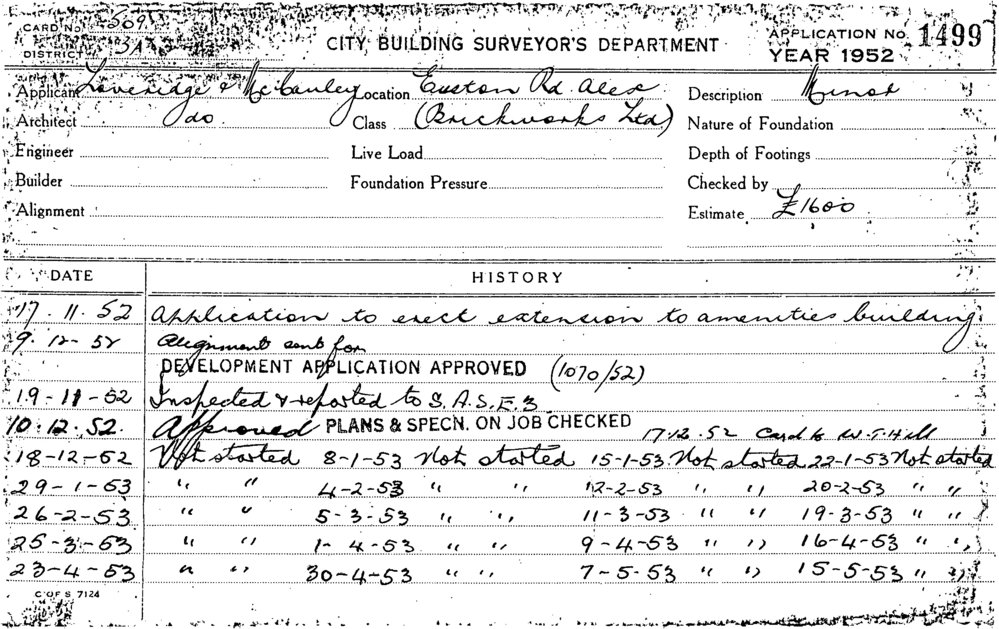 CARD No. 509
DISTRICT
CITY BUILDING SURVEYOR'S DEPARTMENT
APPLICATION No. 1499
YEAR 1952
Applicant Loveridge & McCauley Location Euston Rd. Alex. Description Minor
Architect do Class (Brickworks Ltd) Nature of Foundation
Engineer Live Load Depth of Footings
Builder Foundation Pressure Checked by
Alignment Estimate £1600
DATE HISTORY
17.11.52 Application to erect extension to amenities building
9.12-52 Alignment sent for
DEVELOPMENT APPLICATION APPROVED (1070/52)
19-11-52 Inspected & reported to S.A.S.E.3
10.12.52. Approved PLANS & SPECN. ON JOB CHECKED 17.12.52 Card to W.T. Hill
18-12-52 Not started 8-1-53 Not started 15-1-53 Not started 22-1-53 Not started
29-1-53 " " 4-2-53 " " 12-2-53 " " 20-2-53 " "
26-2-53 " " 5-3-53 " " 11-3-53 " " 19-3-53 " "
25-3-53 " " 1-4-53 " " 9-4-53 " " 16-4-53 " "
23-4-53 " " 30-4-53 " " 7-5-53 " " 15-5-53 " "
C OF S 7124